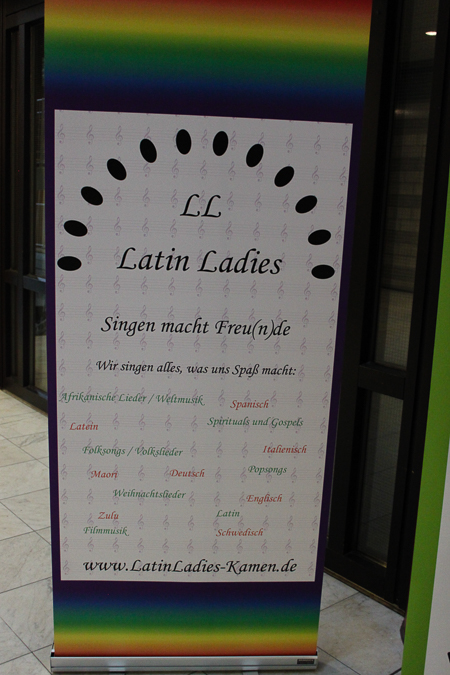 LL
Latin Ladies
Singen macht Freu(n)de
Wir singen alles, was uns Spaß macht:
Afrikanische Lieder / Weltmusik
Spanisch
Latein
Spirituals und Gospels
Folksongs / Volkslieder
Italienisch
Maori
Deutsch
Popsongs
Weihnachtslieder
Englisch
Zulu
Latin
Filmmusik
Schwedisch
www.LatinLadies-Kamen.de